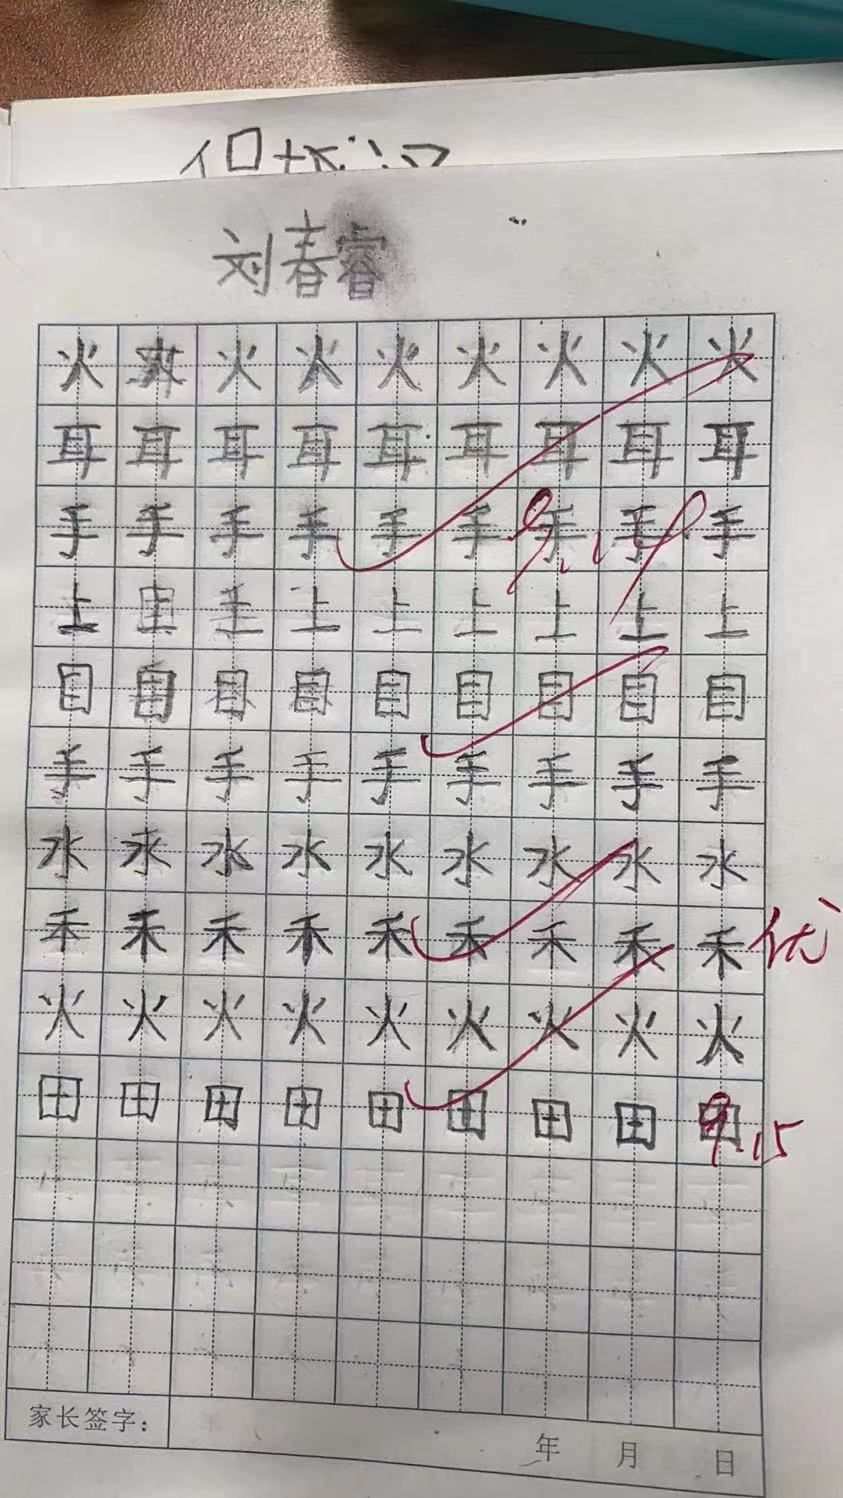 刘春睿
火火火火火火火火火
耳耳耳耳耳耳耳耳耳
手手手手手手手手手
上上上上上上上上上
目目目目目目目目目
手手手手手手手手手
水水水水水水水水水
禾禾禾禾禾禾禾禾禾 优
火火火火火火火火火
田田田田田田田田田
9.15
家长签字：
年 月 日